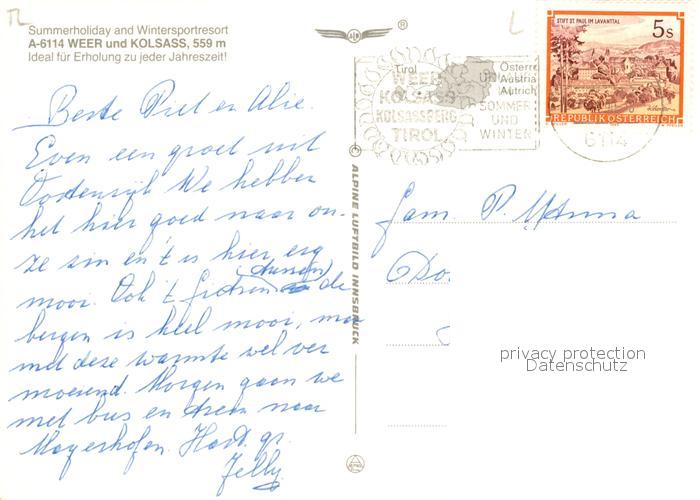 TL
L
Summerholiday and Wintersportresort
A-6114 WEER und KOLSASS, 559 m
Ideal für Erholung zu jeder Jahreszeit!
®
Tirol
WEER
KOLSASS
KOLSASSBERG
TIROL
Österr
Austria
Autrich
SOMMER
UND
WINTER
STIFT ST. PAUL IM LAVANTTAL
5s
REPUBLIK ÖSTERREICH
6114
Beste Piet en Alie.
Even een groet uit
Oostenrijk We hebben
het hier goed naar on-
ze zin en 't is hier erg
mooi. Ook 't fietsen (tussen) de
bergen is heel mooi, maar
met deze warmte wel ver
moeiend. Morgen gaan we
met bus en trein naar
Mayerhofen. Hart. gr.
Jelly
© ALPINE LUFTBILD INNSBRUCK
fam. P.
Do.
privacy protection
Datenschutz